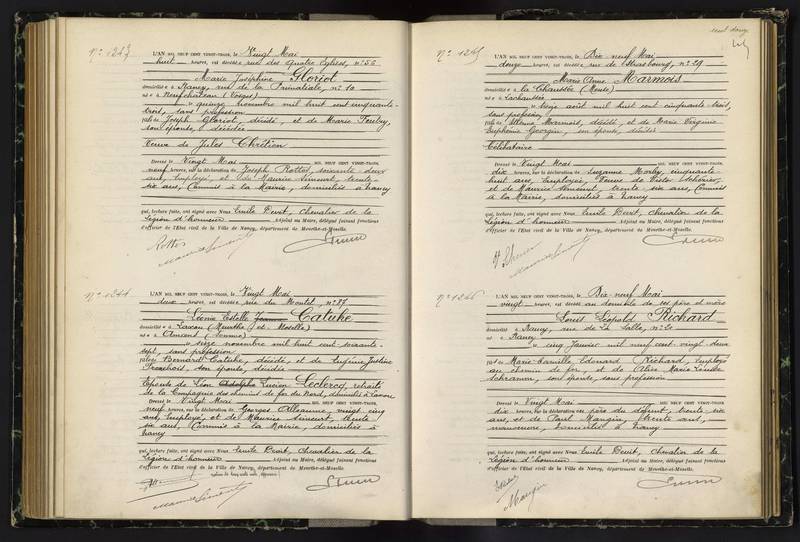 N° 1243
L'AN MIL NEUF CENT VINGT-TROIS, le Vingt Mai
huit heures, est décédée rue des Quatre Eglises, n° 56
Marie Joséphine Gloriot
domiciliée à Nancy, rue de la Primatiale, n° 10
née à Neufchâteau (Vosges)
le quinze novembre mil huit cent cinquante-
trois, sans profession
fille de Joseph Gloriot, décédé, et de Marie
son épouse, décédée
Veuve de Jules Chrétien
Dressé le Vingt Mai MIL NEUF CENT VINGT-TROIS,
neuf heures, sur la déclaration de Joseph Rottos, soixante-deux
ans, employé, et de Maurice Simonet, trente-
six ans, Commis à la Mairie, domiciliés à Nancy
qui, lecture faite, ont signé avec Nous Emile Chevalier de la
Légion d'honneur Adjoint au Maire, délégué faisant fonctions
d'officier de l'Etat civil de la Ville de Nancy, département de Meurthe-et-Moselle.
N° 1244
L'AN MIL NEUF CENT VINGT-TROIS, le Vingt Mai
deux heures, est décédée rue du Montet, n° 87
Léonie Estelle Jeanne Catuhe
domiciliée à Laxou (Meurthe et Moselle)
née à (Somme)
le seize novembre mil huit cent soixante-
sept, sans profession
fille de Bernard Catuhe, décédé, et de Eugénie Justine
son épouse, décédée
Epouse de Léon Adolphe Lucien Leclercq, retraité
de la Compagnie des chemins de fer du Nord, domiciliés à Laxou
Dressé le Vingt Mai MIL NEUF CENT VINGT-TROIS,
neuf heures, sur la déclaration de Georges vingt cinq
ans, employé, et de Maurice Simonet, trente-
six ans, Commis à la Mairie, domiciliés à
Nancy
qui, lecture faite, ont signé avec Nous Emile Chevalier de la
Légion d'honneur Adjoint au Maire, délégué faisant fonctions
d'officier de l'Etat civil de la Ville de Nancy, département de Meurthe-et-Moselle.
cent douze
N° 1245
L'AN MIL NEUF CENT VINGT-TROIS, le Dix-neuf Mai
douze heures, est décédée rue de Strasbourg, n° 29
Marie Anne Marmois
domiciliée à la Chaussée (Meuse)
née à Lachaussée
le onze août mil huit cent cinquante-trois,
sans profession
fille de Etienne Marmois, décédé, et de Marie Virginie
Euphémie Georgin, son épouse, décédée
Célibataire
Dressé le Vingt Mai MIL NEUF CENT VINGT-TROIS,
dix heures, sur la déclaration de Suzanne cinquante-
huit ans, employée, Veuve de Victor
et de Maurice Simonet, trente six ans, Commis
à la Mairie, domiciliés à Nancy
qui, lecture faite, ont signé avec Nous Emile Chevalier de la
Légion d'honneur Adjoint au Maire, délégué faisant fonctions
d'officier de l'Etat civil de la Ville de Nancy, département de Meurthe-et-Moselle.
N° 1246
L'AN MIL NEUF CENT VINGT-TROIS, le Dix-neuf Mai
vingt heures, est décédé au domicile de ses père et mère
Louis Léopold Richard
domicilié à Nancy, rue de La Salle, n° 20
né à Nancy
le cinq Janvier mil neuf cent vingt-deux
fils de Marie-Camille Edouard Richard, employé
au chemin de fer, et de Alice Marie Louise
son épouse, sans profession
Dressé le Vingt Mai MIL NEUF CENT VINGT-TROIS,
dix heures, sur la déclaration du père du défunt, trente-six
ans, et de Paul Mangin, trente ans,
manœuvre, domiciliés à Nancy
qui, lecture faite, ont signé avec Nous Emile Chevalier de la
Légion d'honneur Adjoint au Maire, délégué faisant fonctions
d'officier de l'Etat civil de la Ville de Nancy, département de Meurthe-et-Moselle.
Mangin